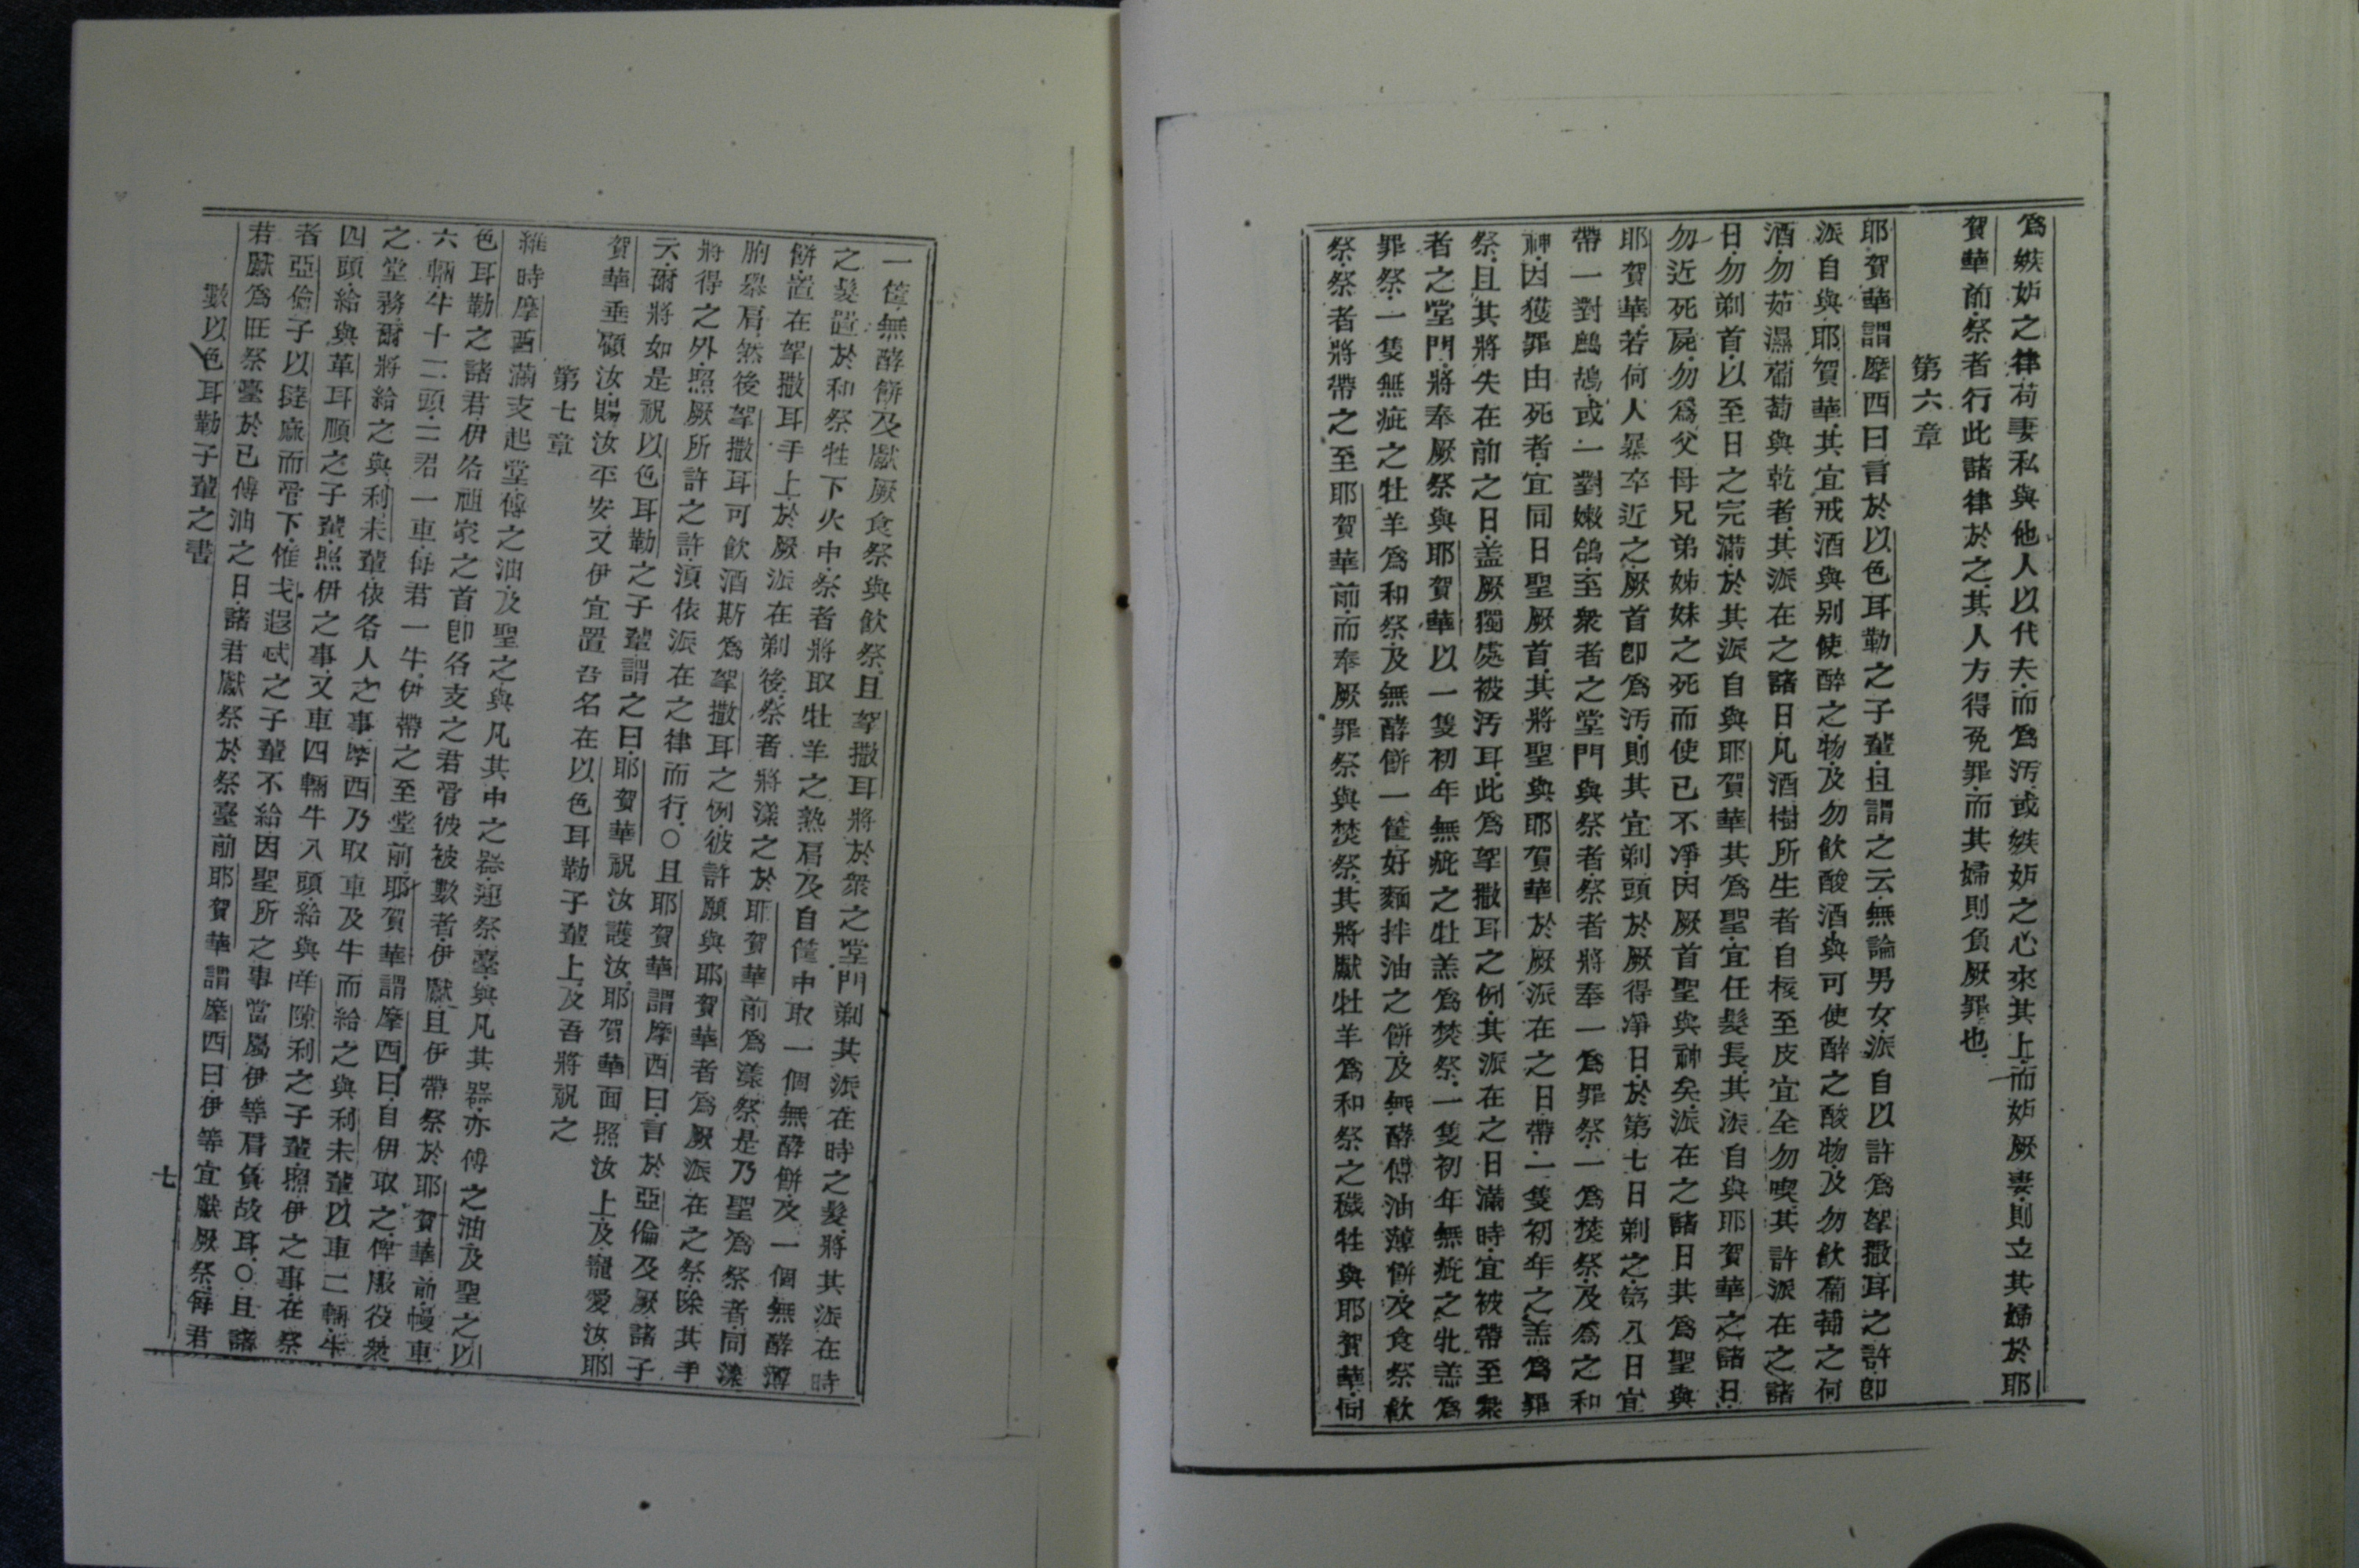 為嫉妬之律苟妻私與他人以代夫而為汚或嫉妬之心來其上而妬厥妻則立其婦於耶
賀華前祭者行此諸律於之其人方得免罪而其婦則負厥罪也
第六章
耶賀華謂摩西曰言於以色耳勒之子輩且謂之云無論男女派自以許為拏撒耳之許卽
派自與耶賀華其宜戒酒與別使醉之物及勿飲酸酒與可使醉之酸物及勿飲葡萄之何
酒勿茹濕葡萄與乾者其派在之諸日凡酒樹所生者自核至皮宜全勿喫其許派在之諸
日勿剃首以至日之完滿於其派自與耶賀華其為聖宜任髮長其派自與耶賀華之諸日
勿近死屍勿為父母兄弟姊妹之死而使己不淨因厥首聖與神矣派在之諸日其為聖與
耶賀華若何人暴卒近之厥首卽為汚則其宜剃頭於厥得淨日於第七日剃之第八日宜
帶一對鷓鴣或一對嫩鴿至衆者之堂門與祭者祭者將奉一為罪祭一為焚祭及為之和
神因獲罪由死者宜同日聖厥首其將聖與耶賀華於厥派在之日帶一隻初年之羔為罪
祭且其將失在前之日盖厥獨處被汚耳此為拏撒耳之例其派在之日滿時宜被帶至衆
者之堂門將奉厥祭與耶賀華以一隻初年無疵之牡羔為焚祭一隻初年無疵之牝羔為
罪祭一隻無疵之牡羊為和祭及無酵餅一筐好麵拌油之餅及無酵傅油薄餅及食祭飲
祭祭者將帶之至耶賀華前而奉厥罪祭與焚祭其將獻牡羊為和祭之犧牲與耶賀華同
一筐無酵餅及獻厥食祭與飲祭且拏撒耳將於衆之堂門剃其派在時之髮將其派在時
之髮置於和祭牲下火中祭者將取牡羊之熟肩及自筐中取一個無酵餅及一個無酵薄
餅置在拏撒耳手上於厥派在剃後祭者將漾之於耶賀華前為漾祭是乃聖為祭者同漾
胸舉肩然後拏撒耳可飲酒斯為拏撒耳之例彼許願與耶賀華者為厥派在之祭除其手
將得之外照厥所許之許須依派在之律而行○且耶賀華謂摩西曰言於亞倫及厥諸子
云爾將如是祝以色耳勒之子輩謂之曰耶賀華祝汝護汝耶賀華面照汝上及寵愛汝耶
賀華垂顧汝賜汝平安又伊宜置吾名在以色耳勒子輩上及吾將祝之
第七章
維時摩西滿支起堂傅之油及聖之與凡其中之器連祭臺與凡其器亦傅之油及聖之以
色耳勒之諸君伊各祖家之首卽各支之君管彼被數者伊獻且伊帶祭於耶賀華前幔車
六輛牛十二頭二君一車每君一牛伊帶之至堂前耶賀華謂摩西曰自伊取之俾服役衆
之堂務爾將給之與利未輩依各人之事摩西乃取車及牛而給之與利未輩以車二輛牛
四頭給與革耳順之子輩照伊之事又車四輛牛八頭給與咩陳利之子輩照伊之事在祭
者亞倫子以撻麻而管下惟戈遐忒之子輩不給因聖所之事當屬伊等肩負故耳○且諸
君獻為旺祭臺於已傅油之日諸君獻祭於祭臺前耶賀華謂摩西曰伊等宜獻厥祭每君
數以色耳勒子輩之書
七